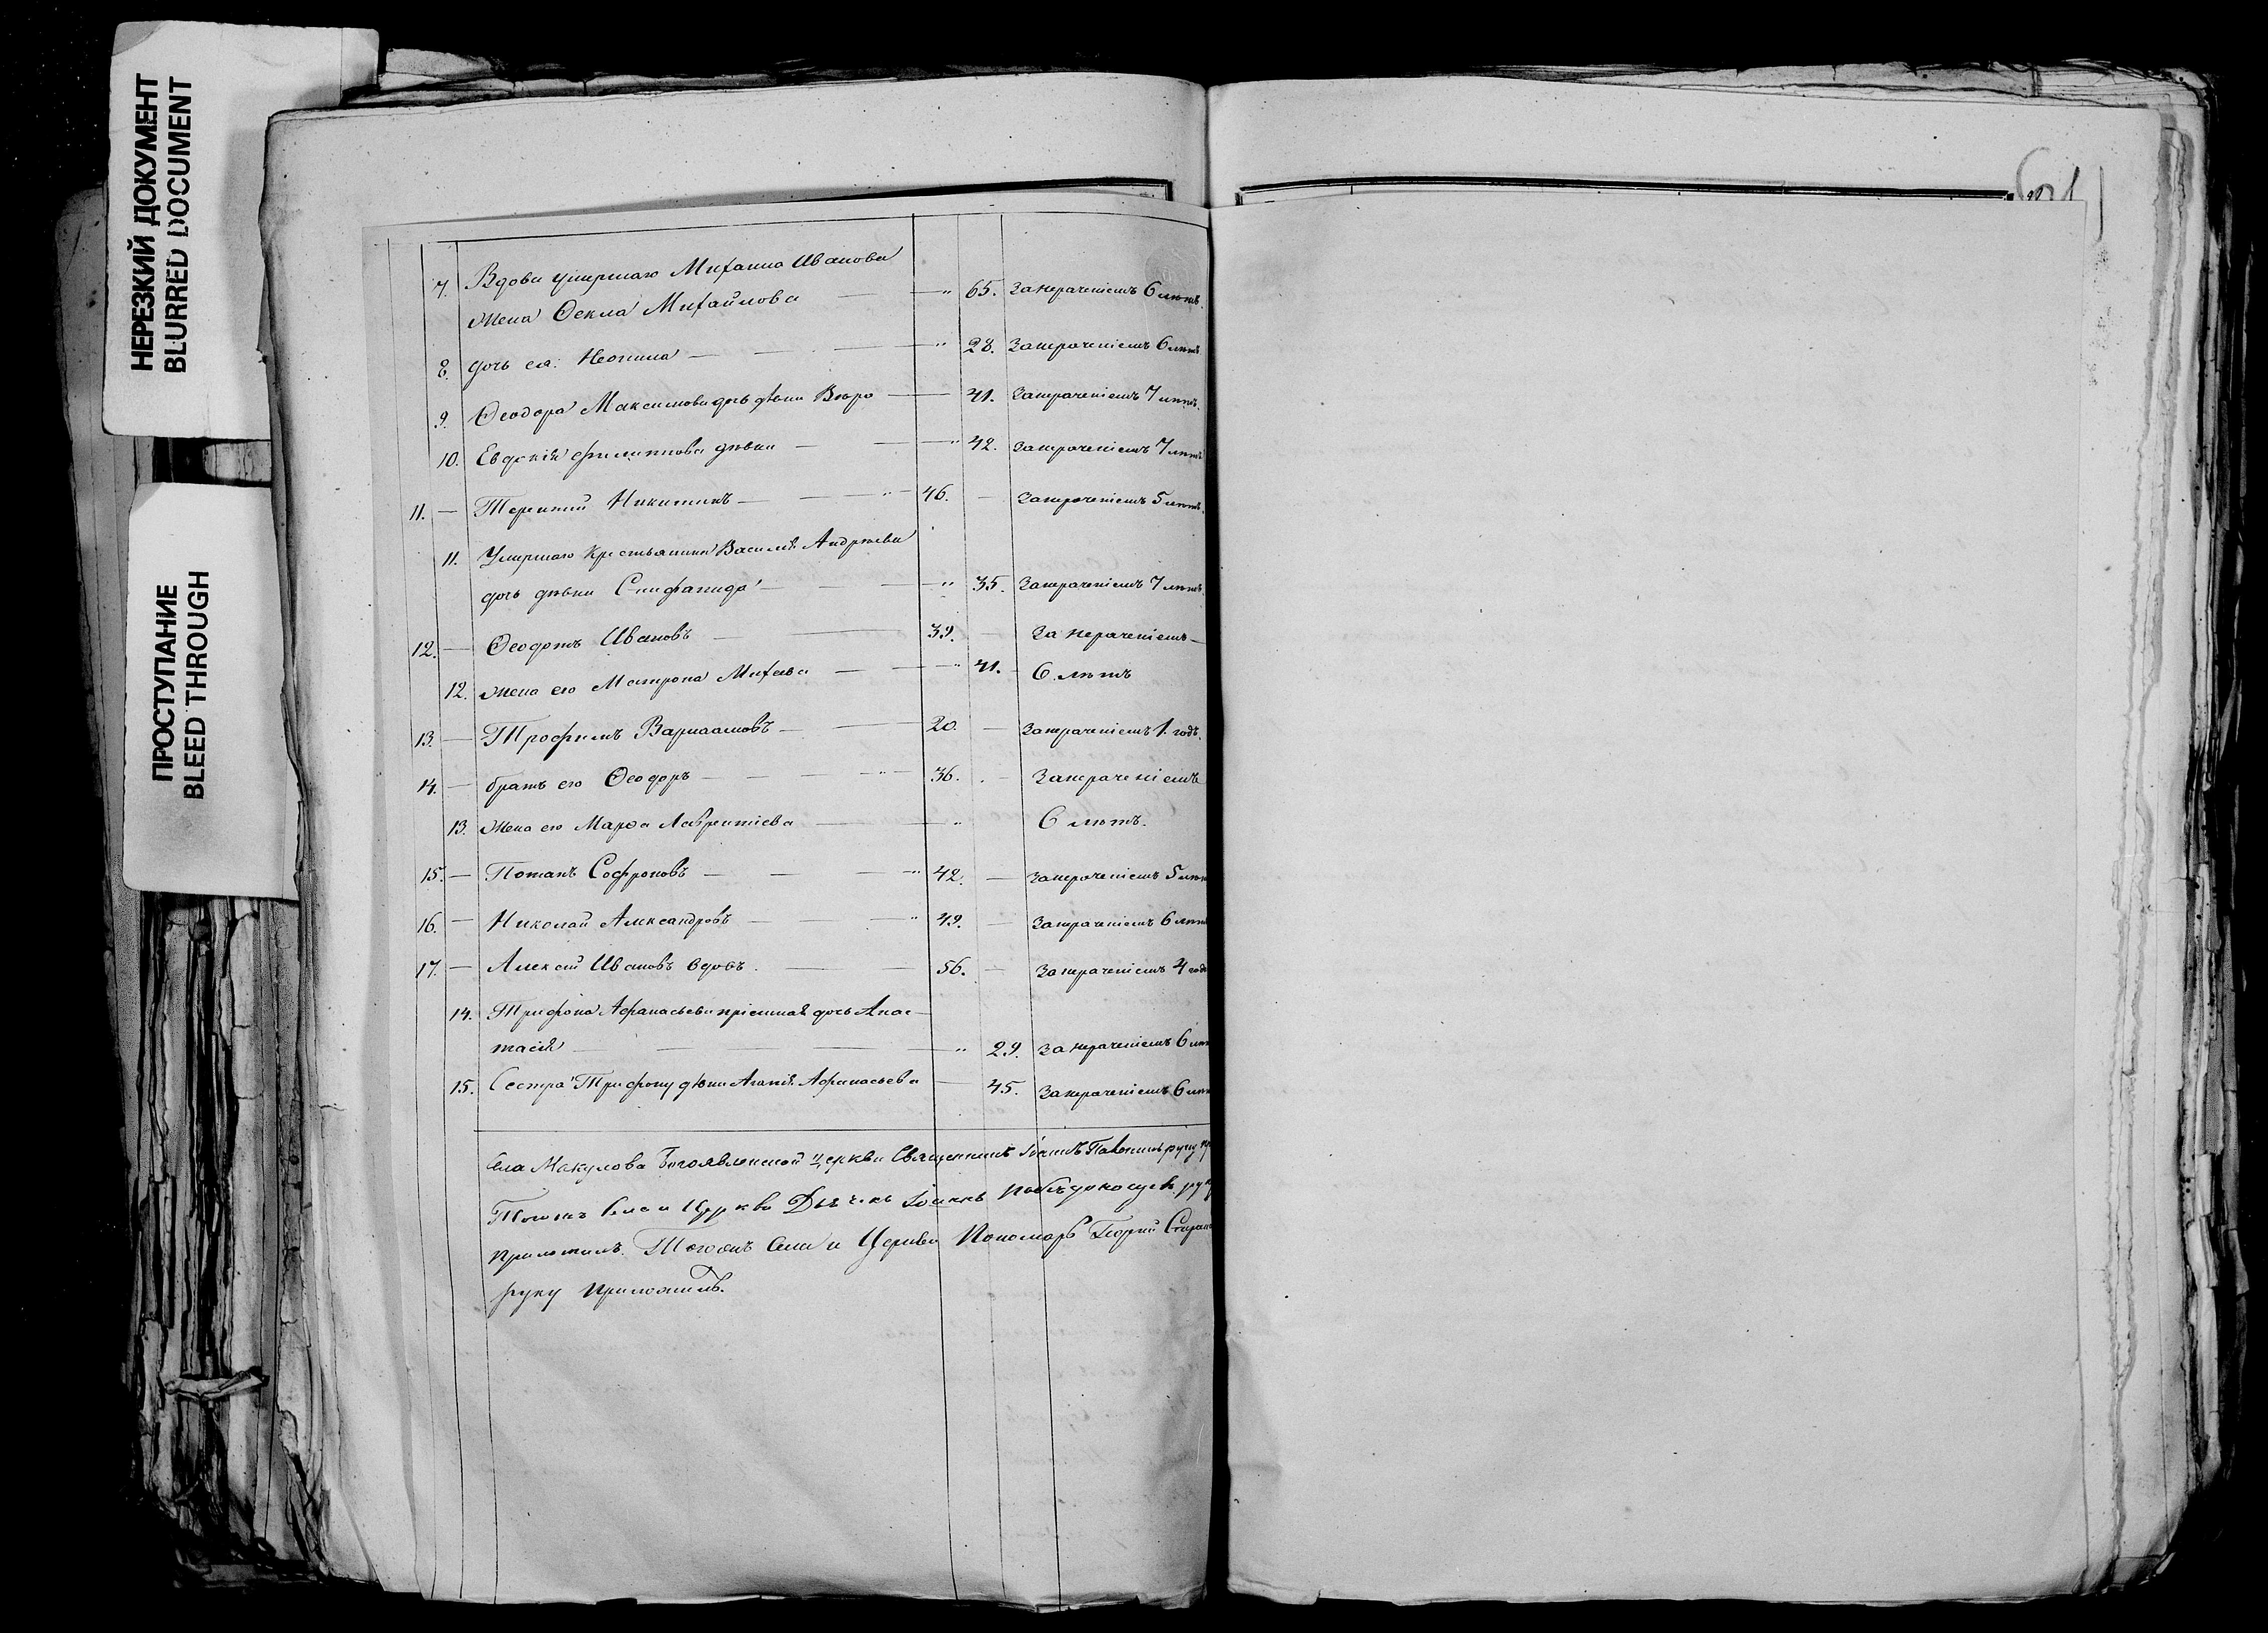 НЕРЕЗКИЙ ДОКУМЕНТ
BLURRED DOCUMENT
ПРОСТУПАНИЕ
BLEED THROUGH
7. Вдова умершаго Михаила Иванова
жена Ѳекла Михайлова — " 65. За нераченіемъ 6 лѣтъ.
8. дочь ея: Неонила — " 28. За нераченіемъ 6 лѣтъ
9. Ѳеодора Максимова дочь дѣвка — 41. За нераченіемъ 7 лѣтъ.
10. Евдокія Филиппова дѣвка — " 42. За нераченіемъ 7 лѣтъ
11. — Терентій Никитинъ — " 46. — За нераченіемъ 5 лѣтъ.
11. Умершаго Крестьянина Василія Андреева
дочь дѣвка — " 35. За нераченіемъ 7 лѣтъ.
12. — Ѳеодотъ Ивановъ — 39. — За нераченіемъ —
12. жена его Матрона Михеева — " 41. — 6. лѣтъ
13. — Трофимъ Варлаамовъ — 20. — За нераченіемъ 1. годъ.
14. — братъ его Ѳеодоръ — " 36. — За нераченіемъ
13. Жена его Марѳа Лаврентіева — " 6 лѣтъ.
15. — Потапъ Софроновъ — " 42. — За нераченіемъ 5 лѣтъ
16. — Николай Александровъ — " 49. — За нераченіемъ 6 лѣтъ
17. — Алексѣй Ивановъ вдовъ. — 56. — За нераченіемъ 4 года
14. Трифона Афанасьева пріемная дочь Анас-
тасія — " 29. За нераченіемъ 6 лѣтъ
15. Сестра Трифону дѣвка Агапія Афанасьева — 45. За нераченіемъ 6 лѣтъ
Села Макулова Богоявленской церкви Священникъ Іоаннъ руку
Тогожъ Села и Церкви Дьячекъ Іоаннъ руку
приложилъ. Тогожъ Села и Церкви Пономарь Георгій
руку приложилъ.